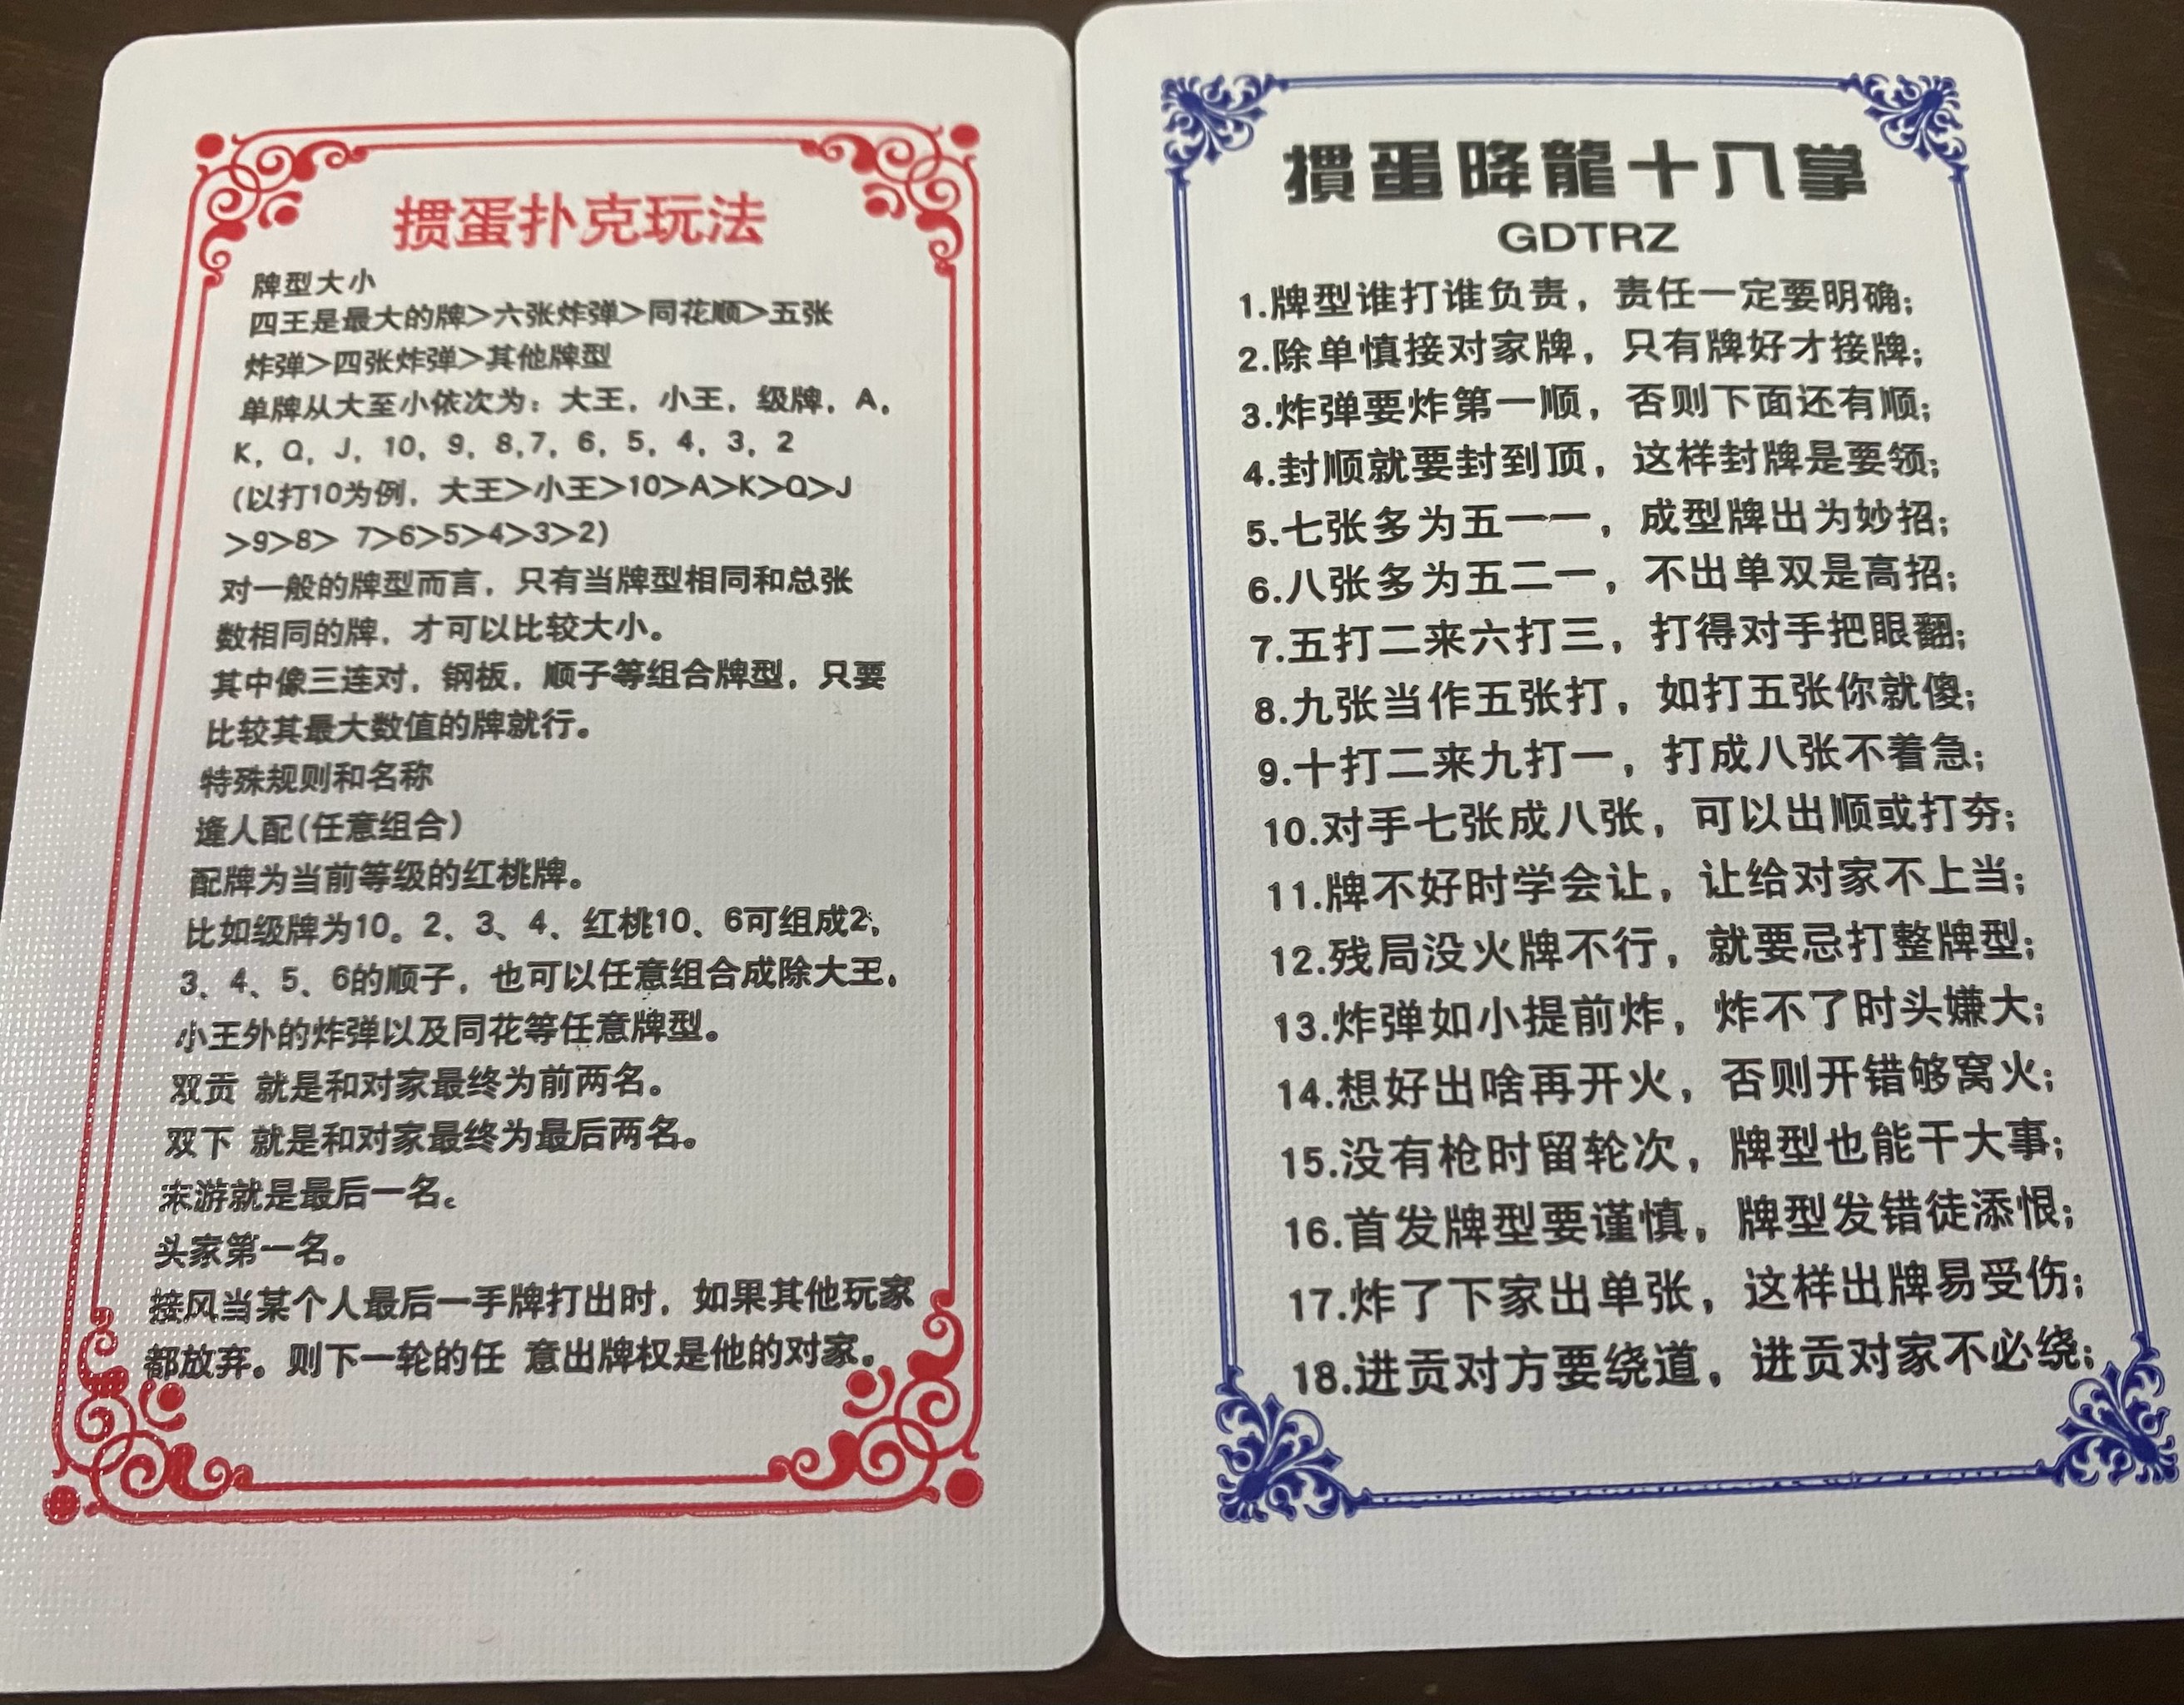 掼蛋扑克玩法
牌型大小
四王是最大的牌>六张炸弹>同花顺>五张
炸弹>四张炸弹>其他牌型
单牌从大至小依次为：大王，小王，级牌，A，
K，Q，J，10，9，8,7，6，5，4，3，2
(以打10为例，大王>小王>10>A>K>Q>J
>9>8> 7>6>5>4>3>2)
对一般的牌型而言，只有当牌型相同和总张
数相同的牌，才可以比较大小。
其中像三连对，钢板，顺子等组合牌型，只要
比较其最大数值的牌就行。
特殊规则和名称
逢人配(任意组合)
配牌为当前等级的红桃牌。
比如级牌为10。2、3、4、红桃10、6可组成2，
3、4、5、6的顺子，也可以任意组合成除大王，
小王外的炸弹以及同花等任意牌型。
双贡 就是和对家最终为前两名。
双下 就是和对家最终为最后两名。
末游就是最后一名。
头家第一名。
接风当某个人最后一手牌打出时，如果其他玩家
都放弃。则下一轮的任 意出牌权是他的对家。
掼蛋降龍十八掌
GDTRZ
1.牌型谁打谁负责，责任一定要明确；
2.除单慎接对家牌，只有牌好才接牌；
3.炸弹要炸第一顺，否则下面还有顺；
4.封顺就要封到顶，这样封牌是要领；
5.七张多为五一一，成型牌出为妙招；
6.八张多为五二一，不出单双是高招；
7.五打二来六打三，打得对手把眼翻；
8.九张当作五张打，如打五张你就傻；
9.十打二来九打一，打成八张不着急；
10.对手七张成八张，可以出顺或打夯；
11.牌不好时学会让，让给对家不上当；
12.残局没火牌不行，就要忌打整牌型；
13.炸弹如小提前炸，炸不了时头嫌大；
14.想好出啥再开火，否则开错够窝火；
15.没有枪时留轮次，牌型也能干大事；
16.首发牌型要谨慎，牌型发错徒添恨；
17.炸了下家出单张，这样出牌易受伤；
18.进贡对方要绕道，进贡对家不必绕；